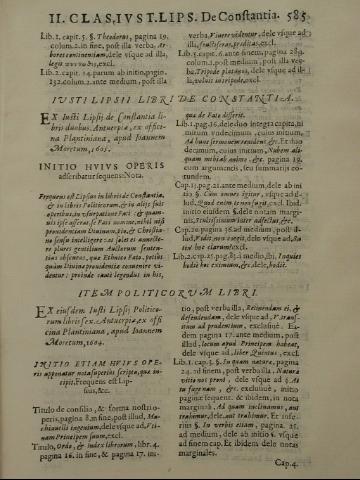 II. CLAS, IVST. LIPS. De Constantia. 585
Lib. 1. cap. 5. §. Theodorus, pagina 19.
colum. 2. in fine, post illa verba, Ar-
bores continentium, dele vsque ad illa,
legit
Lib. 2. cap. 14. parum ab initio, pagin.
232. colum. 2. ante medium, post illa
verba, Vivere videntur, dele vsque ad
illa, fructiferas, prædicas, excl.
Lib. 5. cap. 6. ante finem, pagina
colum. 1. post medium, post illa ver-
ba, Tripode platanus, dele vsque ad il-
la, soluit
IVSTI LIPSII LIBRI DE CONSTANTIA.
EX Iusti Lipsij de Constantia li-
bri duobus. Antuerpiæ, ex offici-
na Plantiniana, apud Ioannem
Moretum, 1605.
INITIO HVIVS OPERIS
adscribatur sequens Nota.
Frequens est Lipsius in libris de Constantia,
& in libris Politicorum, & in alijs suis
operibus, in vsurpatione Fati: & quam-
uis ipse asserat, se Fati nomine, nihil nisi
prouidentiam Diuinam, pio, & Christia-
no sensu intelligere:
plures gentilium Auctorum senten-
tias obscuras, quæ Ethnico Fato, potius
quàm Diuinæ prouidentiæ conuenire vi-
dentur; prouide cautè legendus in his,
quæ de Fato disserit.
Lib. 1. pag. 16. dele
mium vndecimum, cuius initium,
Ad hunc sermonem reuidens &c. Et duo-
decimum, cuius initium, Nubem ali-
quam mihi ab animo, &c. pagina 19.
cum argumentis, seu summarijs eo-
rundem.
Cap. 15. pag. 21. ante medium, dele ab ini-
tio §.
lud, Quod enim
initio eiusdem §. dele notam margi-
nis,
Cap. 20. pagina 36. medium, post il-
lud,
excl.
Lib. 2. cap. 25. pag. 83. medio, ibi, Inquies
hodie hoc extimum, &c, dele, hodie.
ITEM POLITICORVM LIBRI.
EX eiusdem Iusti Lipsij Politico-
rum libris sex. Antuerpiæ ex offi-
cina Plantiniana, apud Ioannem
Moretum, 1604.
INITIO ETIAM HVIVS OPE-
ris apponatur nota superius scripta, quæ in-
cipit, Frequens est Lip-
sius, &c.
Titulo de consilio, & forma nostri o-
peris, pagina 8. in fine, post illud, Ma-
chiauelli ingenium, dele vsque ad, Vti-
nam Principem suum, excl.
Titulo, Ordo, & index librorum, libr. 4.
pagina 16. in fine, & pagina 17. ini-
tio, post verba illa, Retinendam ei, &
defendendam, dele vsque ad, V. trans-
eundum ad prudentiam, exclusiuè. Ea-
dem pagina 17. ante medium, post
illud, locum apud Principem habeat,
dele vsque ad, Liber Quintus, excl.
Lib. 1. cap. 1. §. In quam nature, pagina
24. in finem, post verba illa, Natura
vitio nos proni, dele vsque ad §. At
tu fugeman, &c. exclusiuè, initio
paginæ sequent. & ibidem, in nota
marginali. Ad quam inclinamur, aut
trahimur, dele, aut trahimur. Et infe-
riùs §. In verbis etiam, pagina 25.
ad medium, dele ab initio §. vsque
ad finem cap. Et ibidem dele notas
marginales.
Cap. 4.